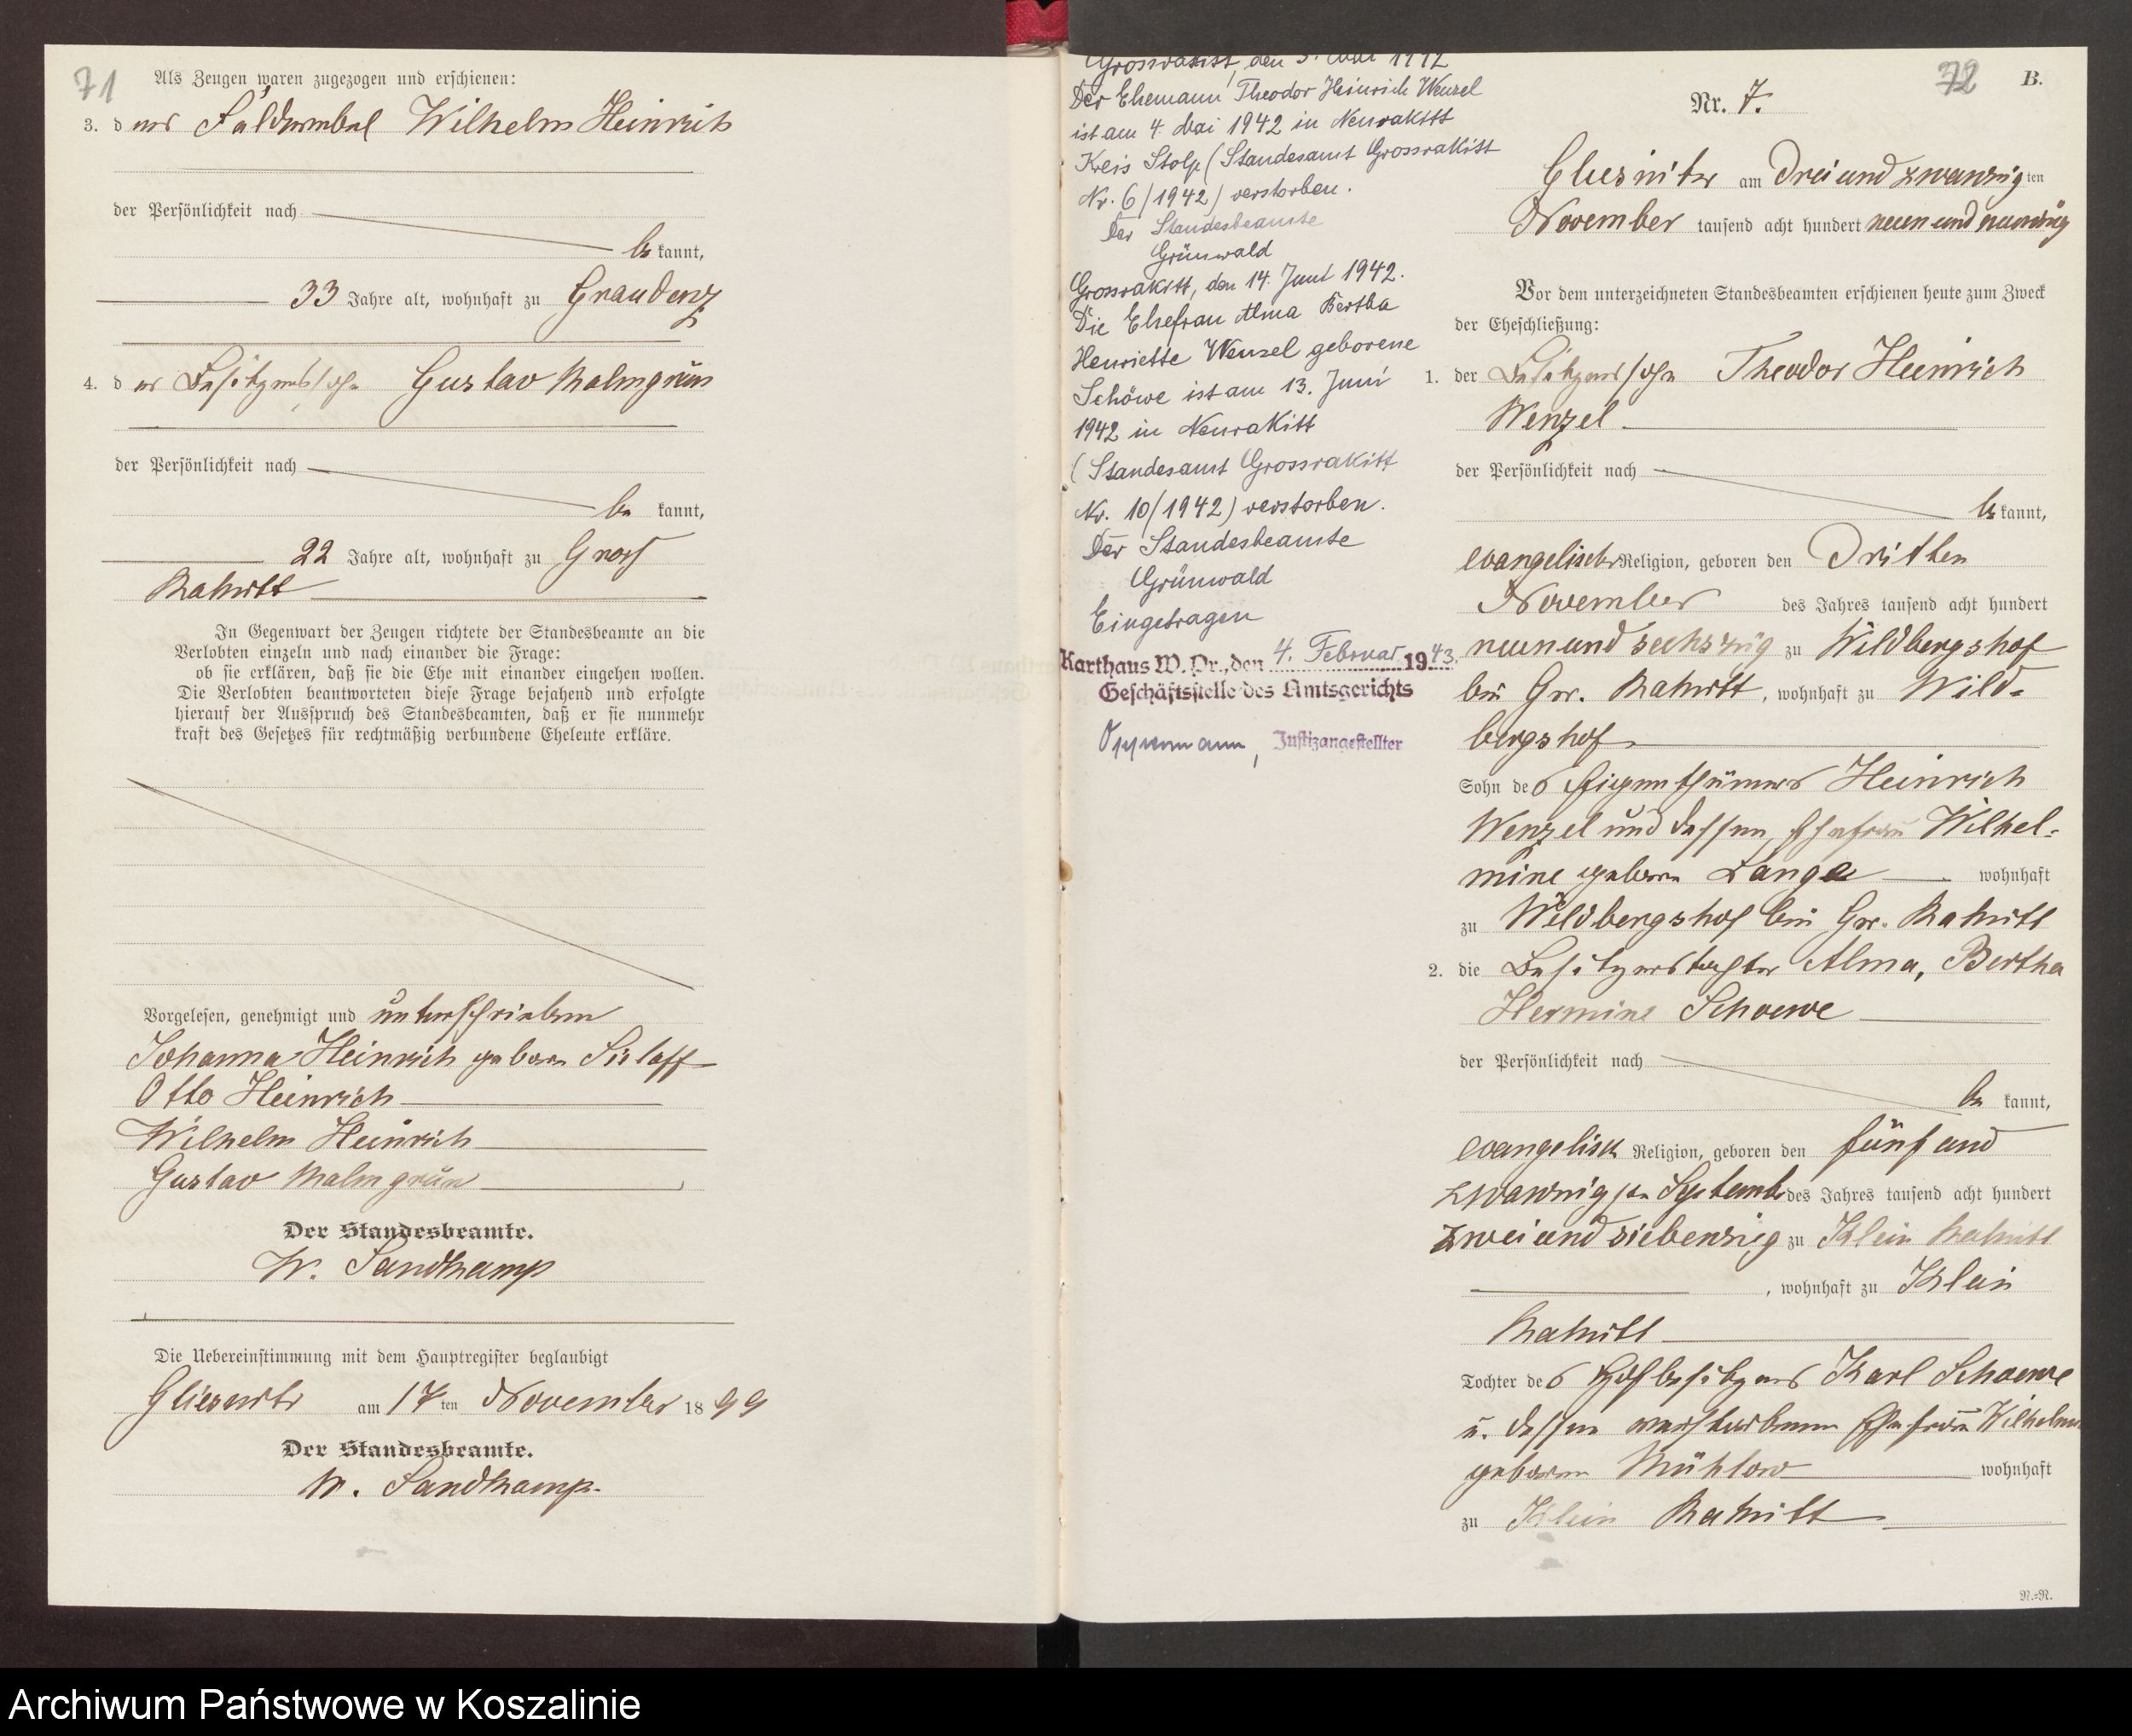 71
Als Zeugen waren zugezogen und erschienen:
3. der Feldwebel Wilhelm Heinrich
der Persönlichkeit nach
be kannt,
33 Jahre alt, wohnhaft zu Graudenz
4. der Besitzerssohn Gustav Malmgrün
der Persönlichkeit nach
be kannt,
22 Jahre alt, wohnhaft zu Groß
Rakitt
In Gegenwart der Zeugen richtete der Standesbeamte an die
Verlobten einzeln und nach einander die Frage:
ob sie erklären, daß sie die Ehe mit einander eingehen wollen.
Die Verlobten beantworteten diese Frage bejahend und erfolgte
hierauf der Ausspruch des Standesbeamten, daß er sie nunmehr
kraft des Gesetzes für rechtmäßig verbundene Eheleute erkläre.
Vorgelesen, genehmigt und unterschrieben
Johanna Heinrich geborn Sielaff
Otto Heinrich
Wilhelm Heinrich
Gustav Malmgrün
Der Standesbeamte.
W. Sandkamp
Die Uebereinstimmung mit dem Hauptregister beglaubigt
Gliesnitz am 17ten November 1899
Der Standesbeamte.
W. Sandkamp.
Grossrakitt, den 5. Mai 1942
Der Ehemann Theodor Heinrich Wenzel
ist am 4. Mai 1942 in Neurakitt
Kreis Stolp (Standesamt Grossrakitt
Nr. 6/1942) verstorben.
Der Standesbeamte
Grünwald
Grossrakitt, den 14. Juni 1942.
Die Ehefrau Alma Bertha
Henriette Wenzel geborene
Schöwe ist am 13. Juni
1942 in Neurakitt
(Standesamt Grossrakitt
Nr. 10/1942) verstorben.
Der Standesbeamte
Grünwald
Eingetragen
Karthaus W. Pr., den 4. Februar 1943.
Geschäftsstelle des Amtsgerichts
Justizangestellter
72
B.
Nr. 7.
Gliesnitz am Drei und zwanzigten
November tausend acht hundert neun und neunzig
Vor dem unterzeichneten Standesbeamten erschienen heute zum Zweck
der Eheschließung:
1. der Besitzerssohn Theodor Heinrich
Wenzel
der Persönlichkeit nach
be kannt,
evangelischer Religion, geboren den Dritten
November des Jahres tausend acht hundert
neun und sechszig zu Wildbergshof
bei Gr. Rakitt, wohnhaft zu Wild-
bergshof
Sohn des Eigenthümers Heinrich
Wenzel und dessen Ehefrau Wilhel-
mine geborn Lange wohnhaft
zu Wildbergshof bei Gr. Rakitt
2. die Besitzerstochter Alma, Bertha
Hermine Schoewe
der Persönlichkeit nach
be kannt,
evangelisch Religion, geboren den fünf und
zwanzigsten September des Jahres tausend acht hundert
zwei und siebenzig zu Klein Rakitt
, wohnhaft zu Klein
Rakitt
Tochter des Hofbesitzers Karl Schoewe
u. dessen verstorbenen Ehefrau Wilhelmine
geboren Mühlow wohnhaft
zu Klein Rakitt
N.-N.
Archiwum Państwowe w Koszalinie